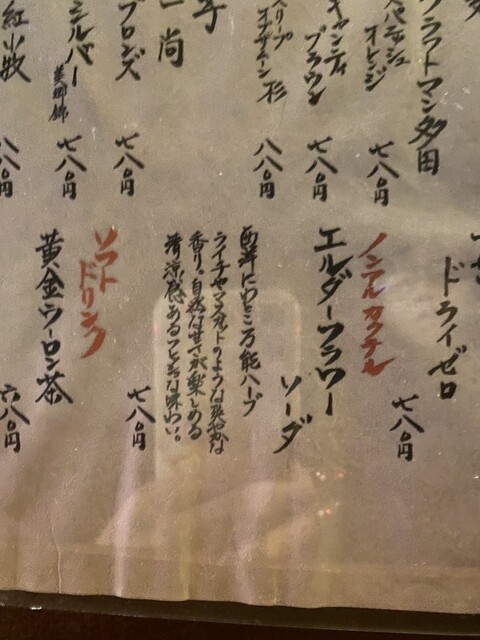 クラフトマン多田
スパニッシュ
オレンジ
七八〇円
キャンティ
ブラウン
七八〇円
スリープ
杉
八八〇円
尚
ブロンズ
七八〇円
シルバー
美郷錦
七八〇円
紅小牧
八八〇円
ドライゼロ
七八〇円
ノンアルカクテル
エルダーフラワー
ソーダ
西洋にわとこ万能ハーブ
ライチやマスカットのような爽やかな
香り。自然な甘さが楽しめる
清涼感あるフレッシュな味わい。
七八〇円
ソフト
ドリンク
黄金ウーロン茶
六八〇円